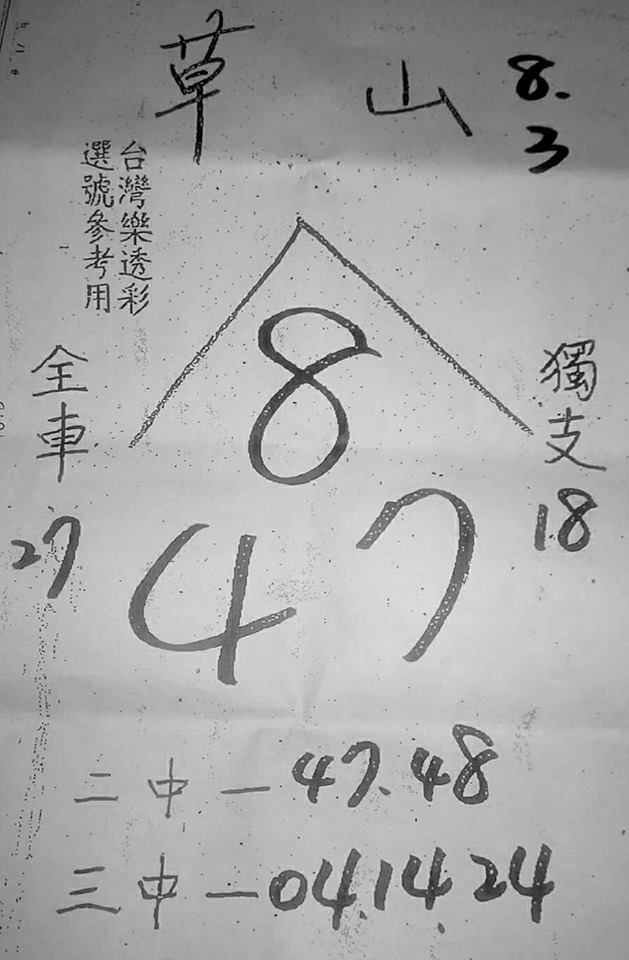 草山 8.3
台灣樂透彩
選號參考用
8
全車
27
獨支
18
4 7
二中－47.48
三中－04.14.24